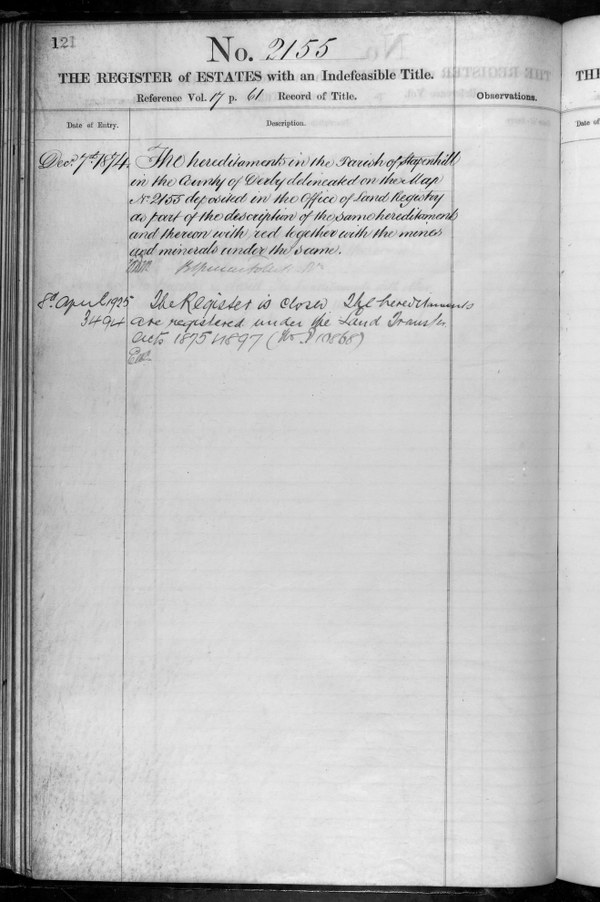 121
No. 2155
THE REGISTER of ESTATES with an Indefeasible Title.
Reference Vol. 17 p. 61 Record of Title.
Observations.
Date of Entry.
Description.
Decr. 7th 1874
The hereditaments in the Parish of Stapenhill
in the County of Derby delineated on the Map
No 2155 deposited in the Office of Land Registry
as part of the description of the same hereditaments
and thereon with red together with the mines
and minerals under the same.
8th April 1925
The Register is closed The hereditments
3494
are registered under the Land Transfer
Acts 1875 & 1897
TH
Date of